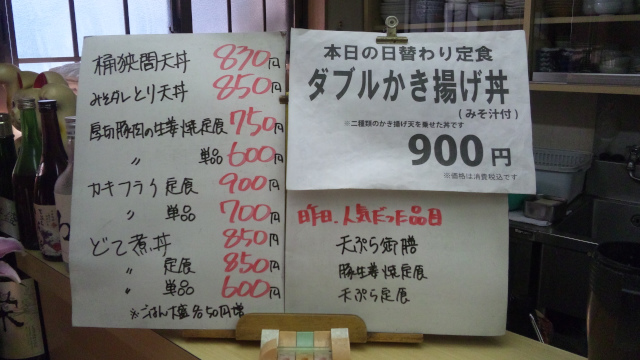 桶狭間天丼 830円
みそダレとり天丼 850円
厚切豚肉の生姜焼定食 750円
〃 単品 600円
カキフライ定食 900円
〃 単品 700円
どて煮丼 850円
〃 定食 850円
〃 単品 600円
※ごはん大盛各50円増
本日の日替わり定食
ダブルかき揚げ丼
(みそ汁付)
※二種類のかき揚げ天を乗せた丼です
900円
※価格は消費税込です
昨日、人気だった品目
天ぷら御膳
豚生姜焼定食
天ぷら定食